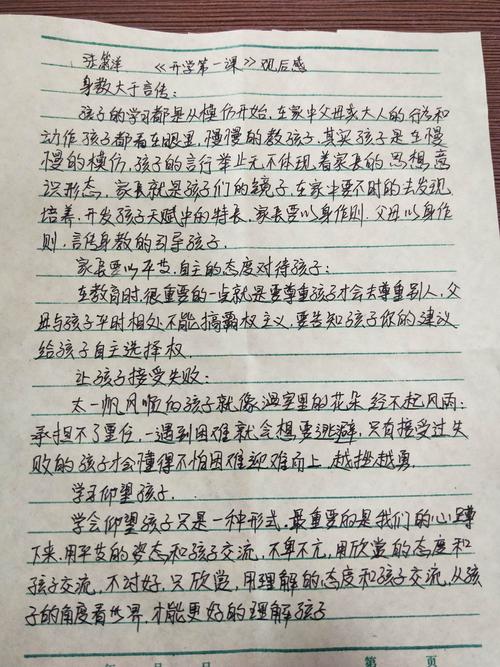 张 洋 《开学第一课》观后感
身教大于言传:
孩子的学习都是从模仿开始,在家中父母亲大人的行为和
动作孩子都看在眼里,慢慢的教孩子,其实孩子是在慢
慢的模仿,孩子的言行举止无不体现着家长的思想,意
识形态,家长就是孩子们的镜子,在家中要不时的去发现
培养,开发孩子天赋中的特长,家长要以身作则.父母以身作
则,言传身教的引导孩子.
家长要以平等.自主的态度对待孩子:
在教育时,很重要的一点就是要尊重孩子才会去尊重别人,父
母与孩子平时相处不能搞霸权主义,要告知孩子你的建议
给孩子自主选择权.
让孩子接受失败:
太一帆风顺的孩子就像温室里的花朵经不起风雨;
承担不了重任,一遇到困难就会想要逃避,只有接受过失
败的孩子才会懂得不怕困难迎难而上,越挫越勇.
学习仰望孩子.
学会仰望孩子只是一种形式,最重要的是我们的心蹲
下来,用平等的姿态和孩子交流,不卑不亢,用欣赏的态度和
孩子交流,不讨好,只欣赏,用理解的态度和孩子交流,从孩
子的角度看世界,才能更好的理解孩子
年 月 日 第 页